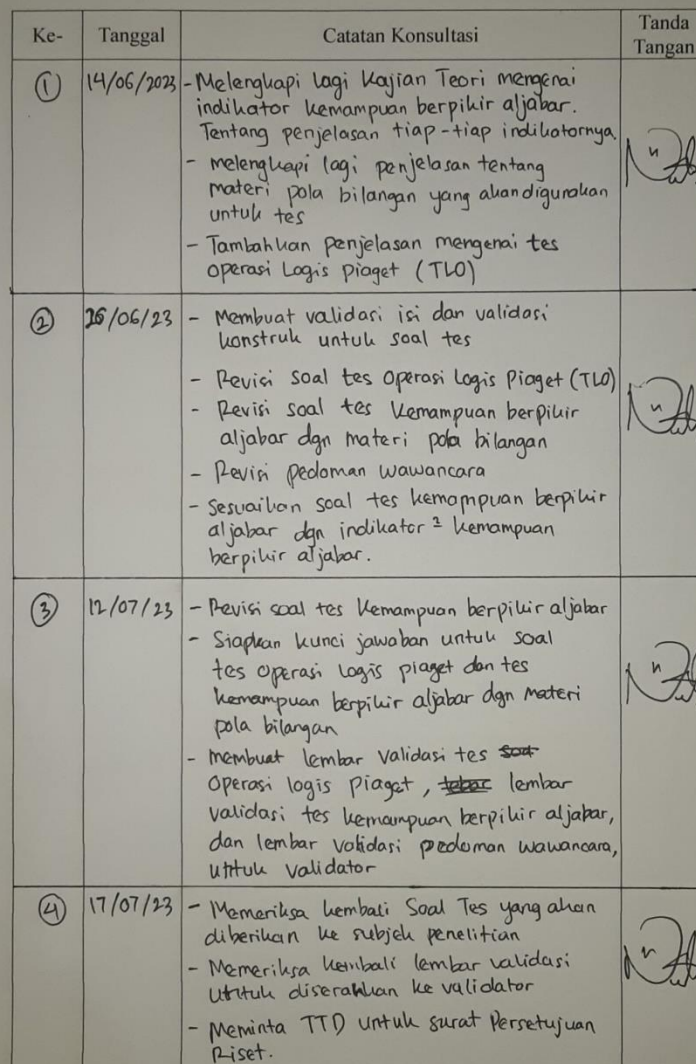 Ke- Tanggal Catatan Konsultasi Tanda Tangan
① 14/06/2023 - Melengkapi lagi Kajian Teori mengenai
indikator kemampuan berpikir aljabar.
Tentang penjelasan tiap-tiap indikatornya
- melengkapi lagi penjelasan tentang
materi pola bilangan yang akan digunakan
untuk tes
- Tambahkan penjelasan mengenai tes
operasi Logis Piaget (TLO)
② 26/06/23 - Membuat validasi isi dan validasi
konstruk untuk soal tes
- Revisi soal tes Operasi Logis Piaget (TLO)
- Revisi soal tes kemampuan berpikir
aljabar dgn materi pola bilangan
- Revisi pedoman wawancara
- Sesuaikan soal tes kemampuan berpikir
aljabar dgn indikator² kemampuan
berpikir aljabar.
③ 12/07/23 - Revisi soal tes kemampuan berpikir aljabar
- Siapkan kunci jawaban untuk soal
tes operasi logis piaget dan tes
kemampuan berpikir aljabar dgn materi
pola bilangan
- membuat lembar validasi tes
Operasi logis Piaget, lembar
validasi tes kemampuan berpikir aljabar,
dan lembar validasi pedoman wawancara,
untuk validator
④ 17/07/23 - Memeriksa kembali Soal Tes yang akan
diberikan ke subjek penelitian
- Memeriksa kembali lembar validasi
untuk diserahkan ke validator
- Meminta TTD untuk surat Persetujuan
Riset.